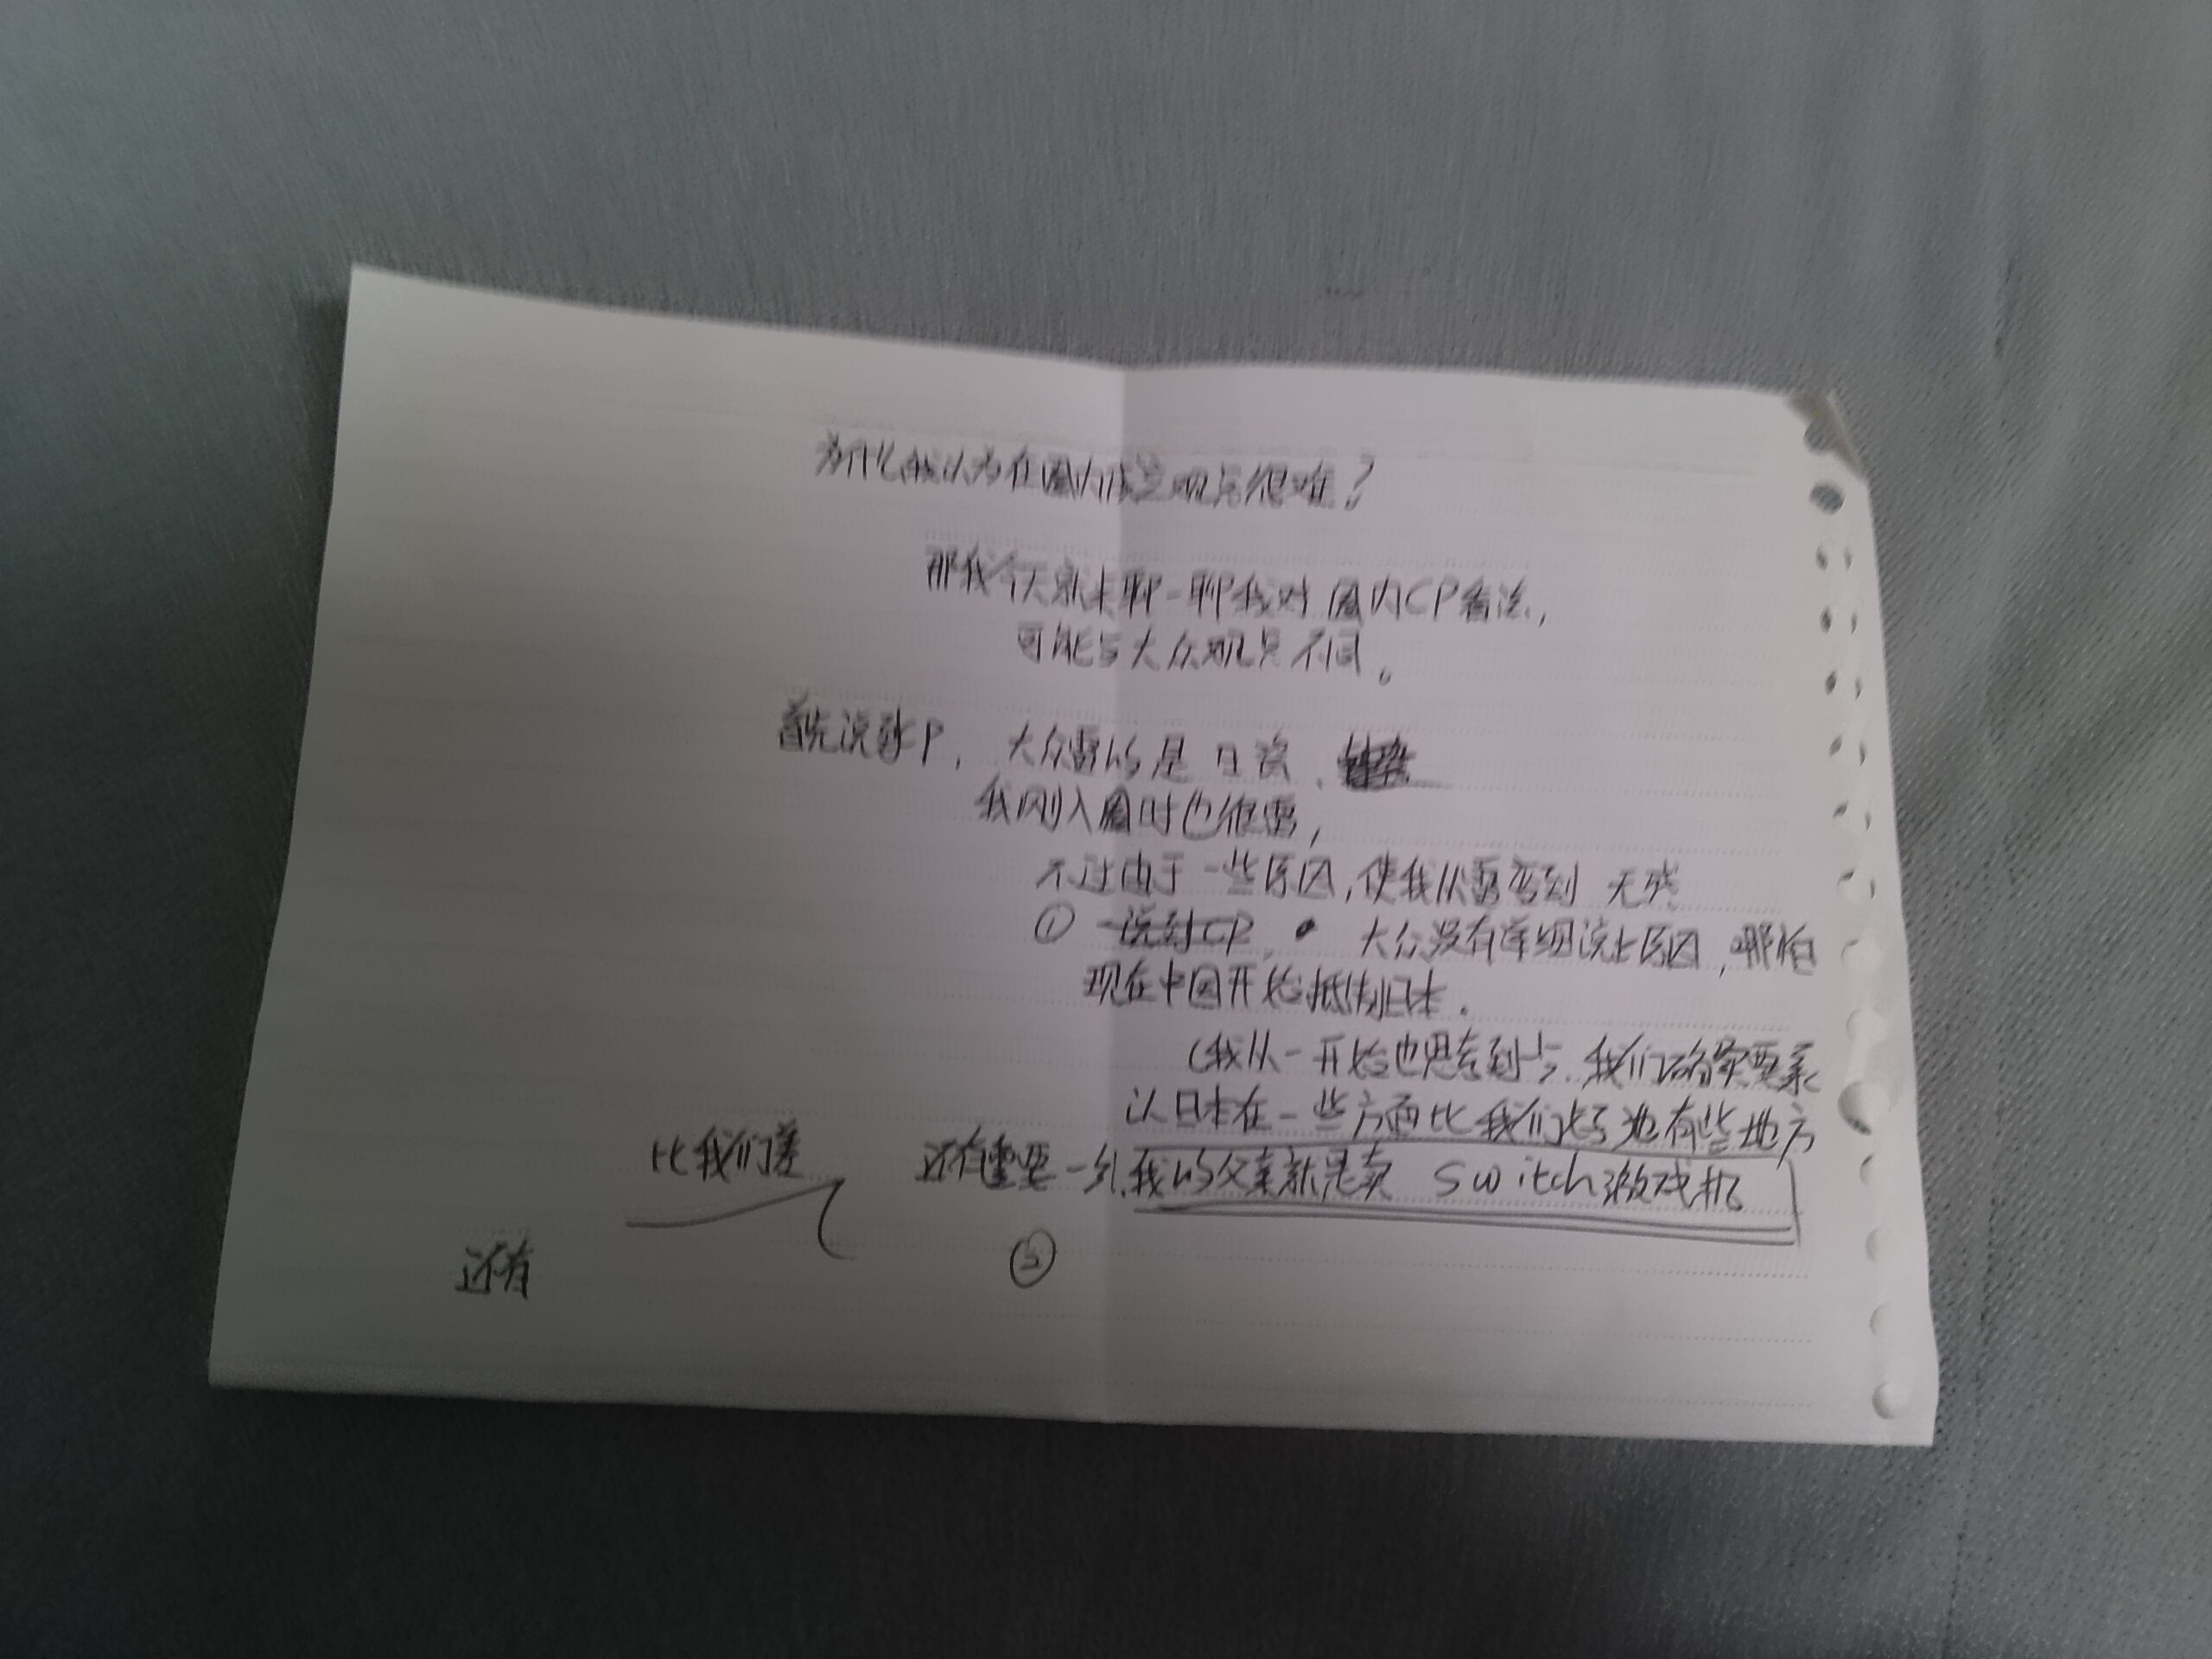 为什么我认为在圈内成立观点很难？
那我今天就来聊一聊我对圈内CP看法，
可能与大众观点不同。
首先说到CP，大众雷的是日瓷、
我刚入圈时也很雷，
不过由于一些原因，使我从雷变到无感
① 一说到CP，大众没有详细说上原因，哪怕
现在中国开始抵制日本．
（我从一开始也思考到与．我们确实要承
认日本在一些方面比我们好也有些地方
比我们差 还有重要一点，我的父亲就是卖 Switch游戏机
还有 ②